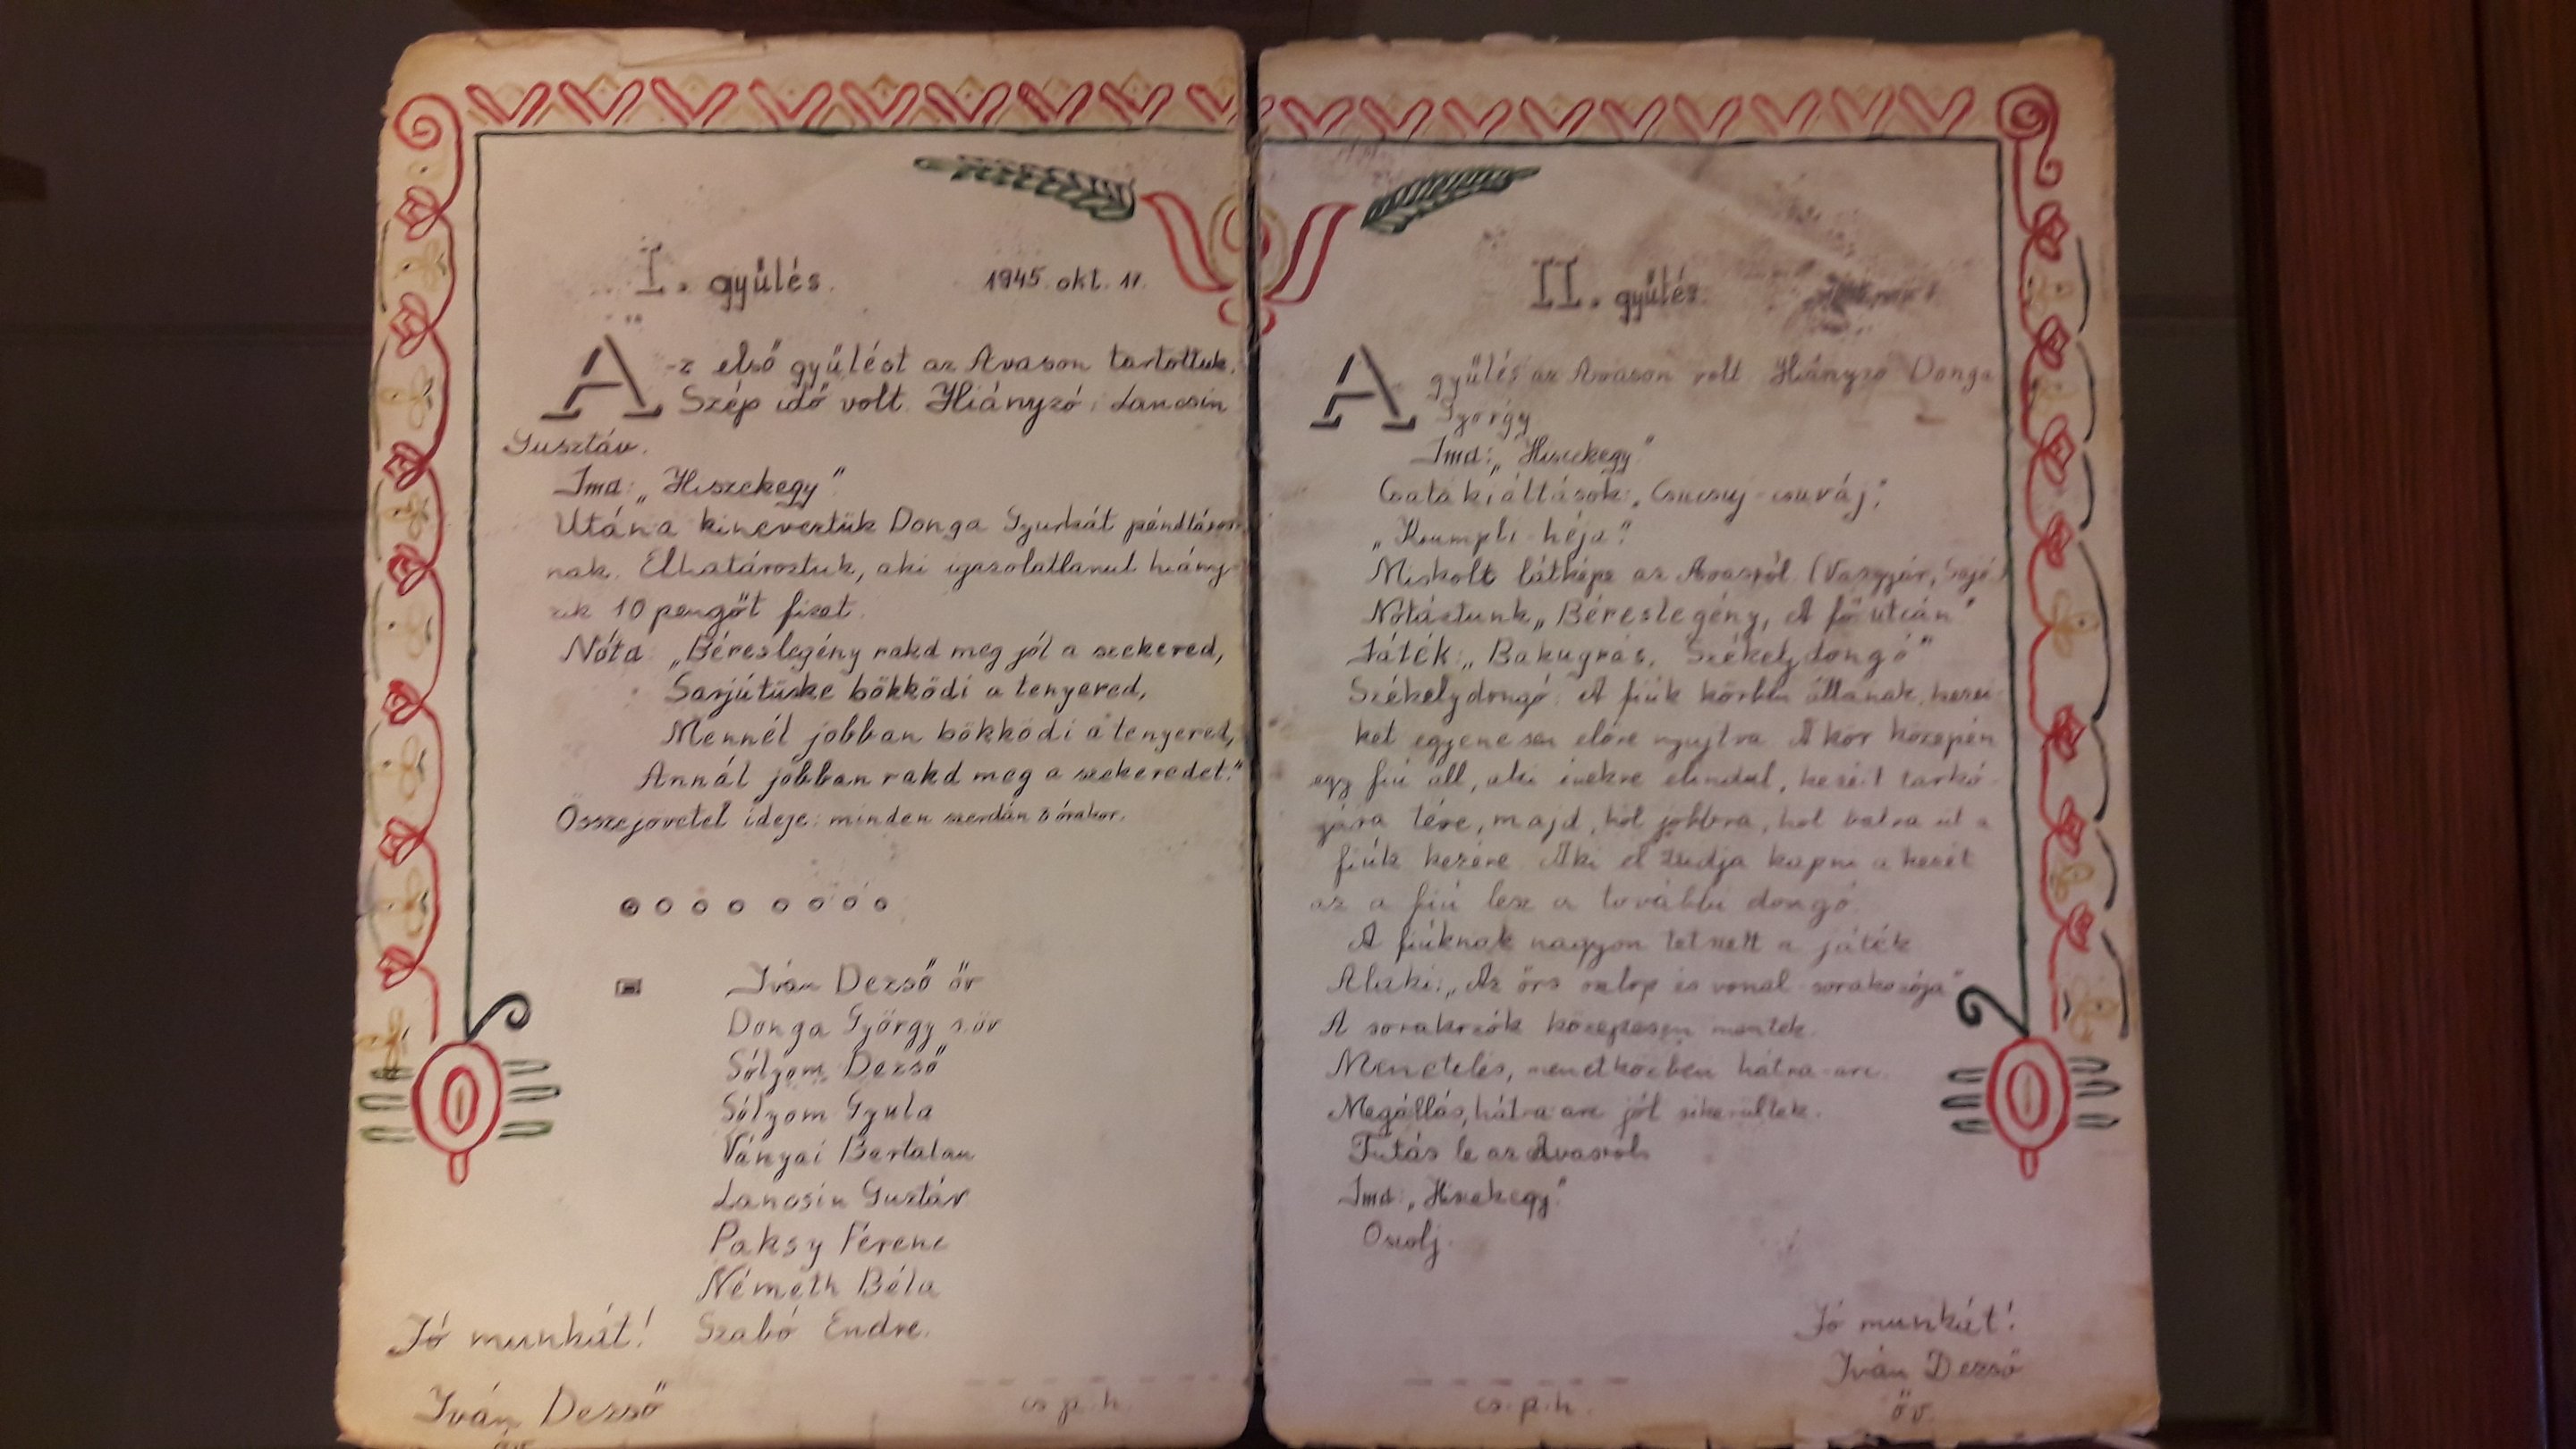 I. gyűlés. 1945. okt. 11.
A-z első gyűlést az Avason tartottuk.
Szép idő volt. Hiányzó: Lancsin
Gusztáv.
Ima: „Hiszekegy”.
Utána kineveztük Donga Gyurkát pénztáros-
nak. Elhatároztuk, aki igazolatlanul hiány-
zik 10 pengőt fizet.
Nóta: „Béreslegény rakd meg jól a szekered,
Sarjútüske bökködi a tenyered,
Mennél jobban bökködi a tenyered,
Annál jobban rakd meg a szekeredet.”
Összejövetel ideje: minden szerdán 3 órakor.
Iván Dezső őv
Donga György s.őv
Sólyom Dezső
Sólyom Gyula
Ványai Bertalan
Lancsin Gusztáv
Paksy Ferenc
Németh Béla
Jó munkát! Szabó Endre.
Iván Dezső
őv.
cs.p.h.
II. gyűlés.
A gyűlés az Avason volt. Hiányzó Donga
György
Ima: „Hiszekegy”
Csatakiáltások: „Csucsuj-csuváj”.
„Krumpli-héja”.
Miskolt látképe az Avasról. (Vasgyár, Sajó)
Nótáztunk „Béreslegény, A fő utcán”
Játék: „Bakugrás, Székelydongó”
Székelydongó: A fiúk körben állanak, kezei-
ket egyenesen előre nyujtva. A kör közepén
egy fiú áll, aki énekre elindul, kezeit tarkó-
jára téve, majd, hol jobbra, hol balra üt a
fiúk kezére. Aki el tudja kapni a kezét
az a fiú lesz a további dongó.
A fiúknak nagyon tetszett a játék
Alaki: „Az őrs oszlop és vonal sorakozója”
A sorakozók közepesen mentek.
Menetelés, menetközben hátra-arc.
Megállás, hátra-arc jól sikerültek.
Futás le az Avasról.
Ima: „Hiszekegy.”
Oszolj.
Jó munkát!
Iván Dezső
őv.
cs.p.h.